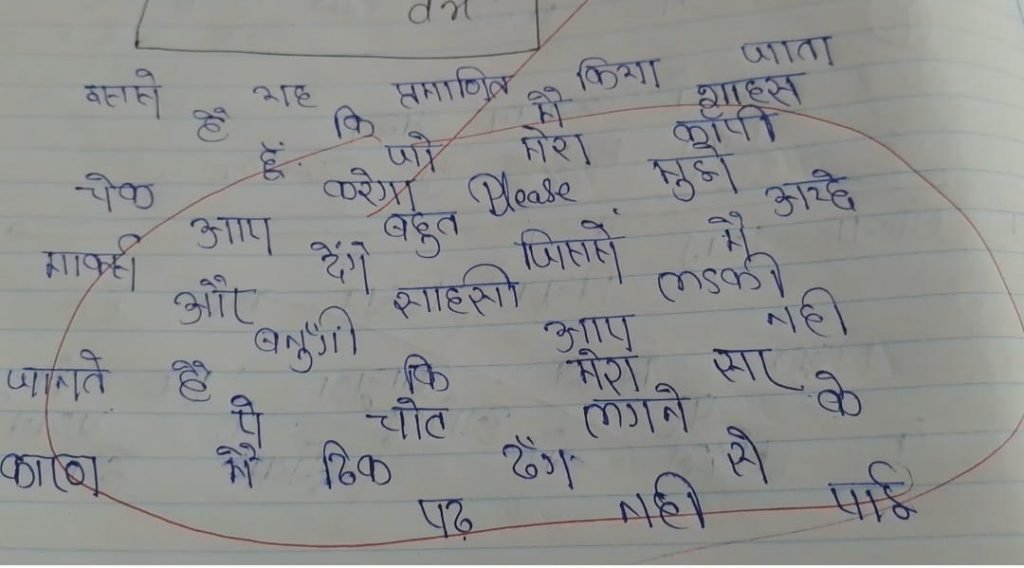 यह प्रमाणित किया जाता
है कि मैं शाहस
हूँ. जो मेरा कॉपी
चेक करेगा Please मुझे
आप बहुत अच्छे
मार्क्स देंगे जिससे मैं
और साहसी लडकी
बनुँगी आप नही
जानते है कि मेरा सर
पे चोट लगने के
कारण मैं ठिक ढँग से
पढ़ नही पाई